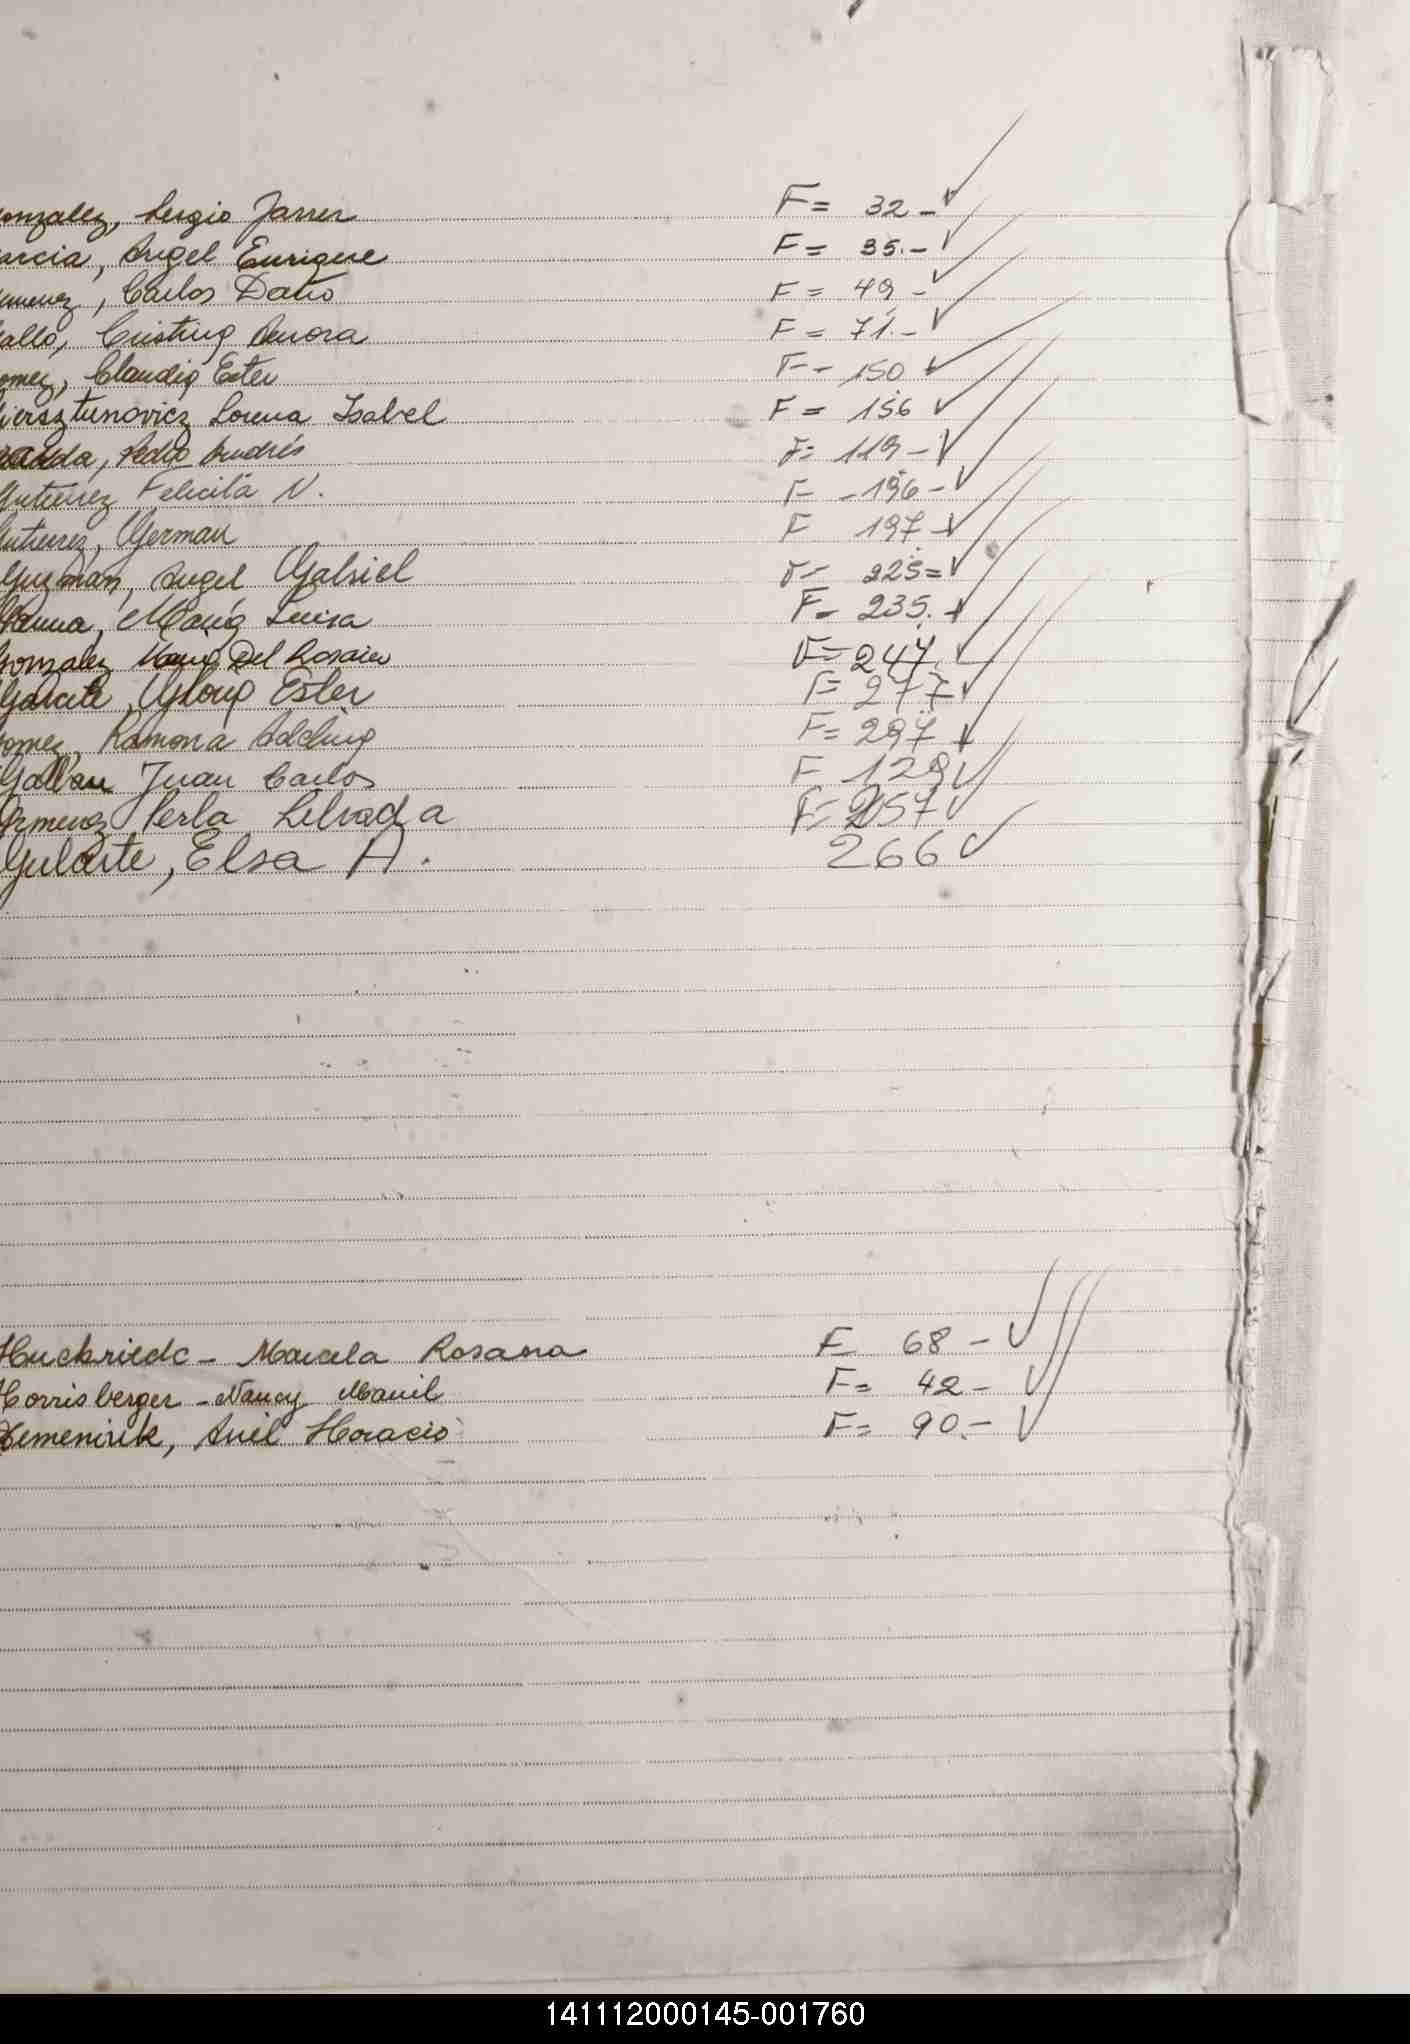 onzalez, Sergio Javier F= 32-
arcia, Angel Enrique F= 35.-
imenez, Carlos Dario F= 49-
allo, Cristina Lenora F= 71.-
omez, Claudia Ester F- 150
Giersztunovicz Lorena Isabel F= 156
Pedro Andrés F= 119-
Gutierrez Felicita N. F- 196-
Gutierrez, German F 197-
Guzman, Angel Gabriel F- 225=
María Luisa F- 235.-
Gonzalez María Del Rosario F= 247
Garate, Gloria Ester F= 277
omez, Ramona F= 297
Galvan Juan Carlos F 129
Perla F= 257
Gularte, Elsa A. 266
Huckriede - Marcela Rosana F 68-
Horrisberger - Nancy F= 42-
Ariel Horacio F= 90.-
141112000145-001760